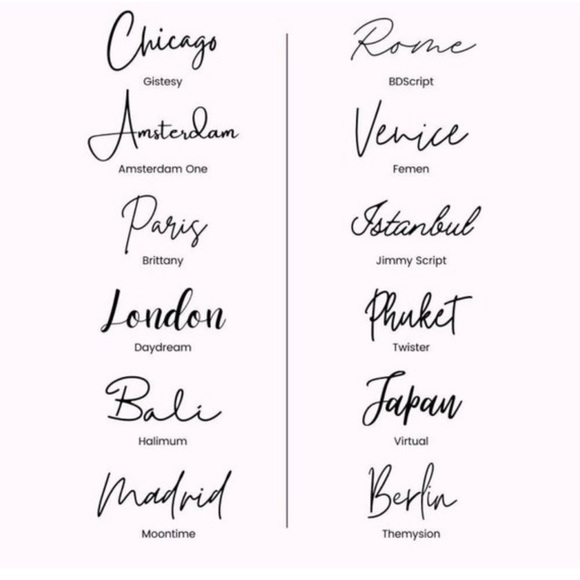 Chicago
Gistesy
Amsterdam
Amsterdam One
Paris
Brittany
London
Daydream
Bali
Halimum
Madrid
Moontime
Rome
BDScript
Venice
Femen
Istanbul
Jimmy Script
Phuket
Twister
Japan
Virtual
Berlin
Themysion